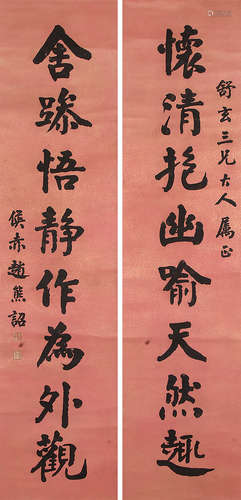 舒玄三兄大人屬正
懷清抱幽喻天然趣
舍跡悟靜作為外觀
侯赤趙熊詔